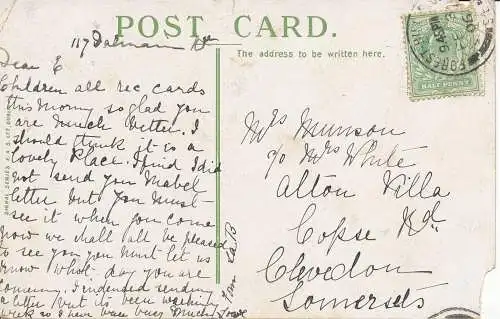 POST CARD.
The address to be written here.
117 Dalmain Rd
Dear E
Children all rec cards
this Morny so glad you
are much better. I
should think it is a
lovely Place. I find I did
not send you Mabel
letter but you must
see it when you come
now we shall all be pleased
to see you you must let us
know what day you are
coming. I indended sending
a letter but its been washing
week so I have been busy Much Love
from
Mrs Munson
c/o Mrs White
Alton Villa
Copse Rd
Clevedon
Somersets
HALF PENNY
FOREST HILL